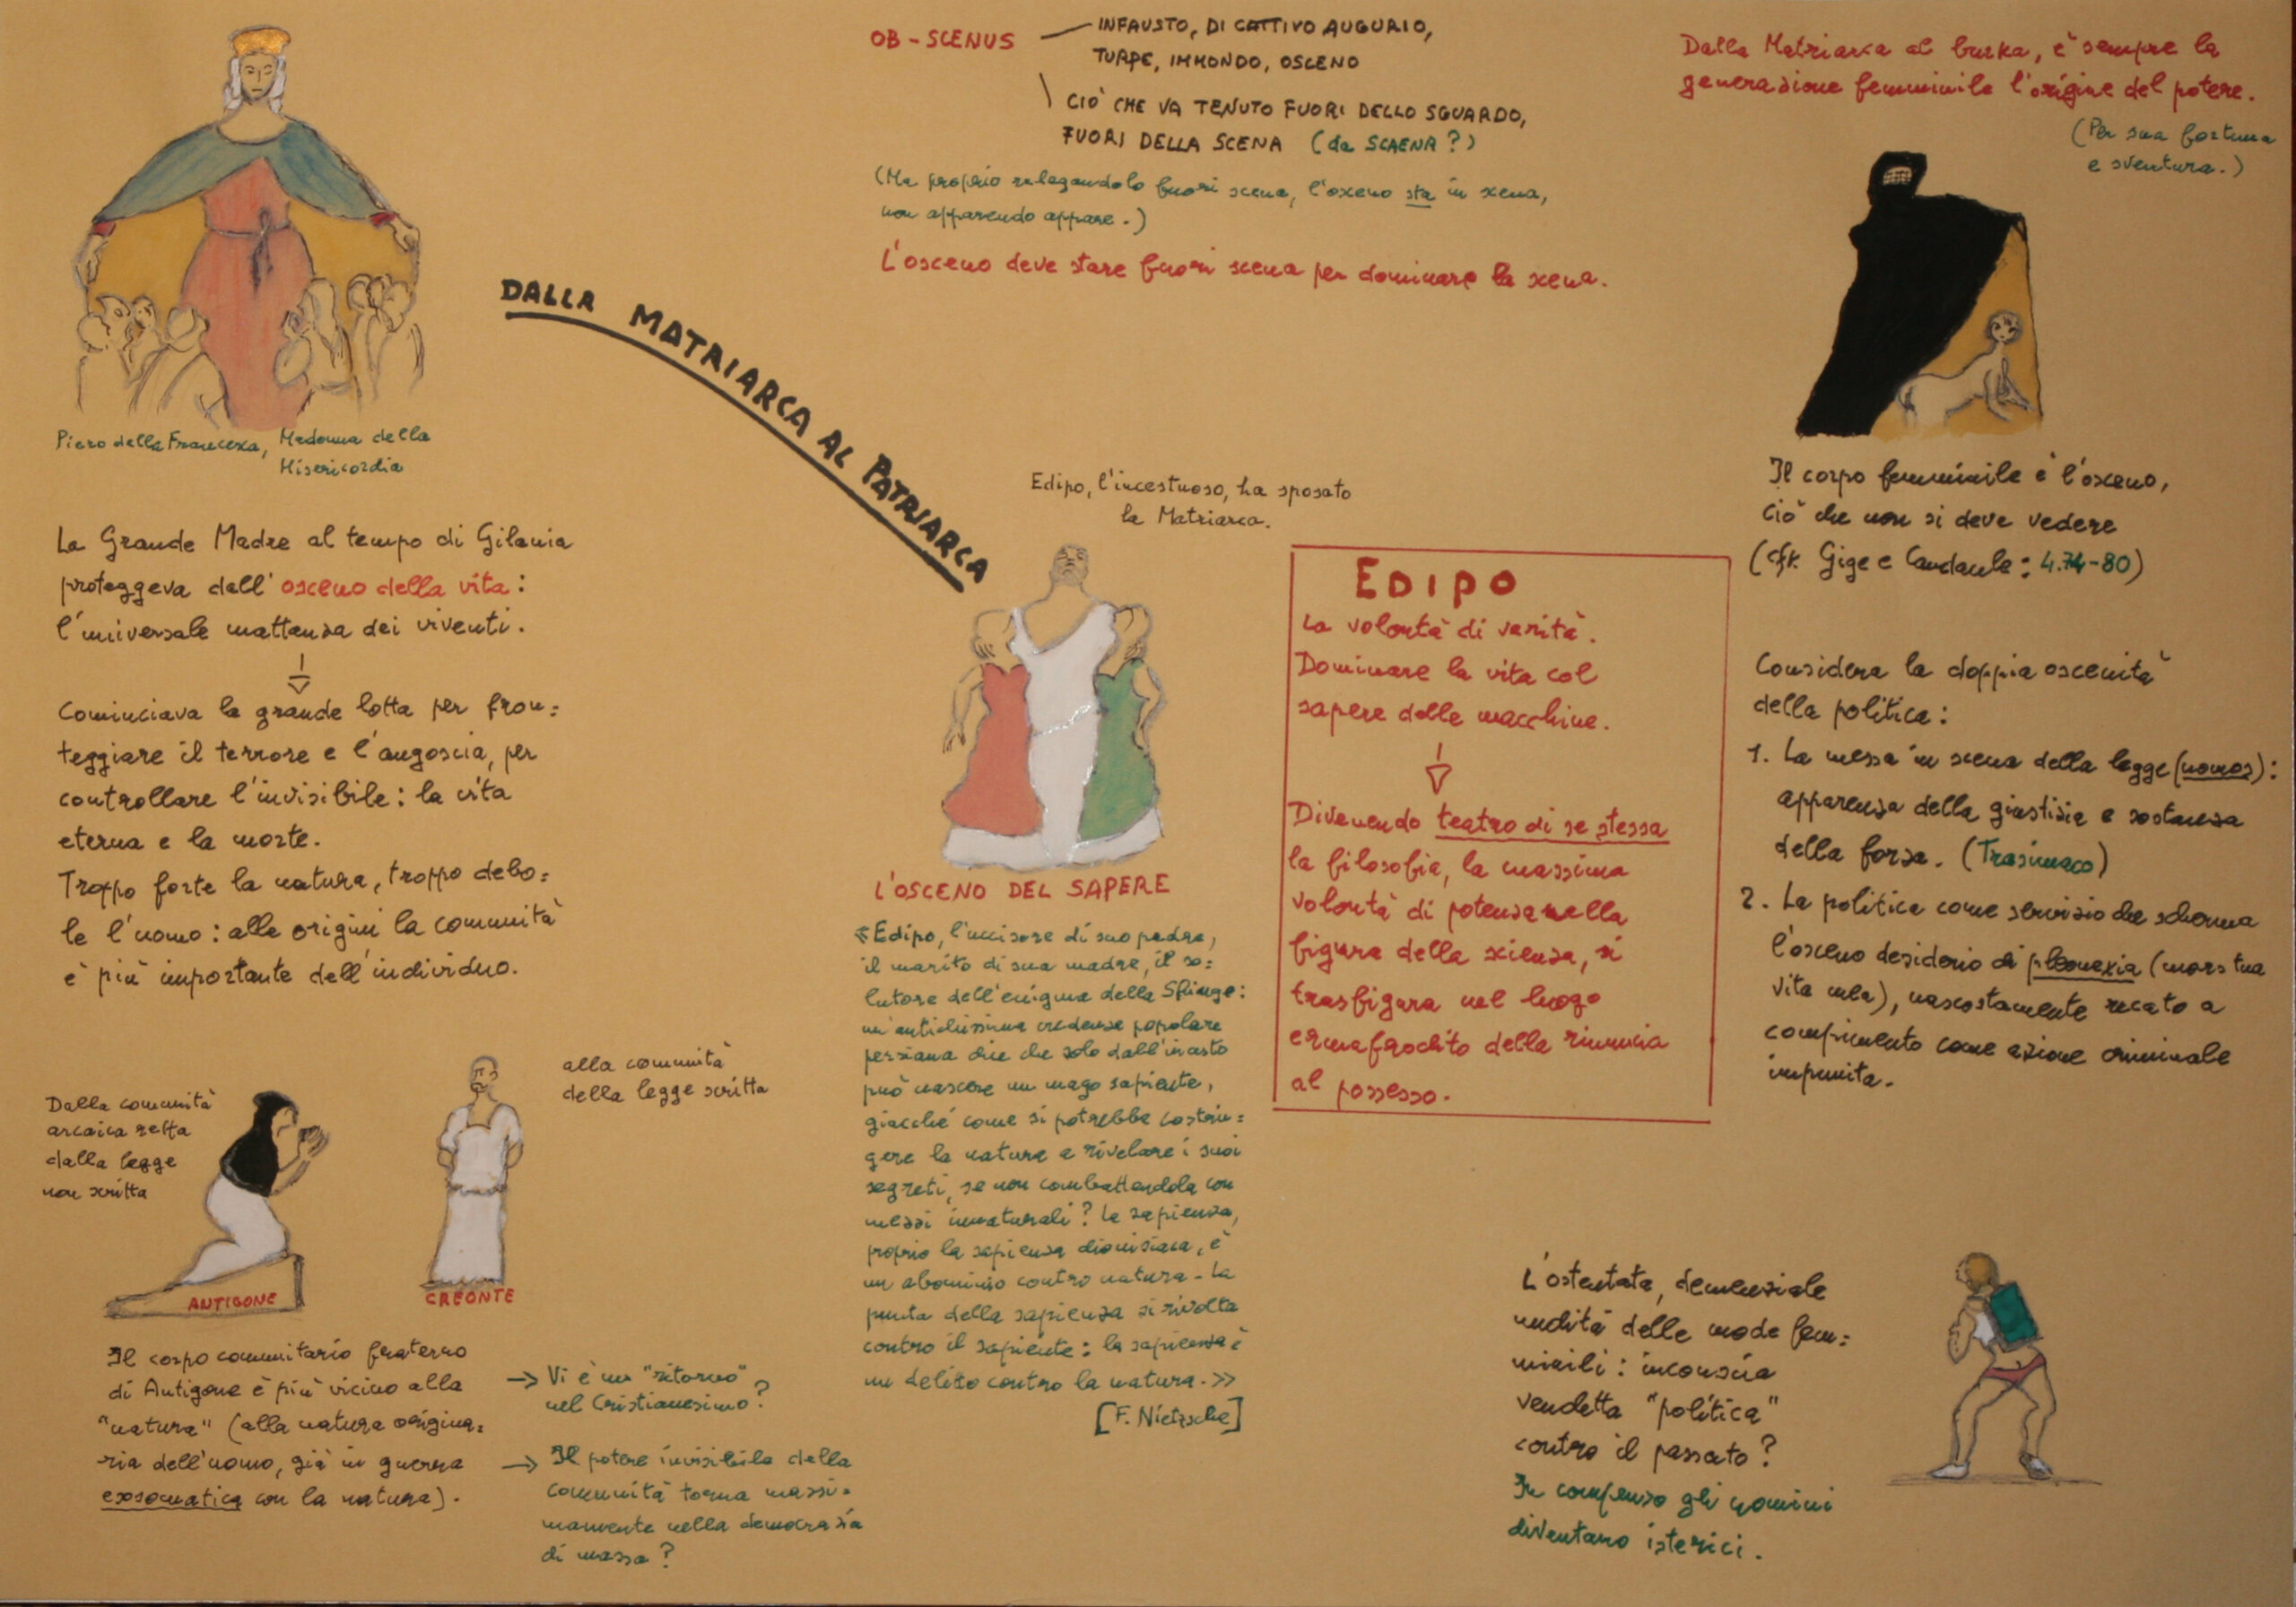 OB-SCENUS
INFAUSTO, DI CATTIVO AUGURIO,
TURPE, IMMONDO, OSCENO
CIÒ CHE VA TENUTO FUORI DELLO SGUARDO,
FUORI DELLA SCENA (da SCAENA?)
(Ma proprio relegandolo fuori scena, l'osceno sta in scena,
non apparendo appare.)
L'osceno deve stare fuori scena per dominare la scena.
Dalla Matriarca al burka, è sempre la
generazione femminile l'origine del potere.
(Per sua fortuna
e sventura.)
DALLA MATRIARCA AL PATRIARCA
Piero della Francesca, Madonna della
Misericordia
La Grande Madre al tempo di Gilania
proteggeva dall'osceno della vita:
l'universale mattanza dei viventi.
Cominciava la grande lotta per fron=
teggiare il terrore e l'angoscia, per
controllare l'invisibile: la vita
eterna e la morte.
Troppo forte la natura, troppo debo=
le l'uomo: alle origini la comunità
è più importante dell'individuo.
Dalla comunità
arcaica retta
dalla legge
non scritta
ANTIGONE
CREONTE
alla comunità
della legge scritta
Il corpo comunitario fraterno
di Antigone è più vicino alla
"natura" (alla natura origina=
ria dell'uomo, già in guerra
exosomatica con la natura).
→ Vi è un "ritorno"
nel Cristianesimo?
→ Il potere invisibile della
comunità torna massi=
mamente nella democrazia
di massa?
Edipo, l'incestuoso, ha sposato
la Matriarca.
L'OSCENO DEL SAPERE
«Edipo, l'uccisore di suo padre,
il marito di sua madre, il so=
lutore dell'enigma della Sfinge:
un'antichissima credenza popolare
persiana dice che solo dall'incesto
può nascere un mago sapiente,
giacché come si potrebbe costrin=
gere la natura a rivelare i suoi
segreti, se non combattendola con
mezzi innaturali? La sapienza,
proprio la sapienza dionisiaca, è
un abominio contro natura. La
punta della sapienza si rivolta
contro il sapiente: la sapienza è
un delitto contro la natura.»
[F. Nietzsche]
EDIPO
La volontà di verità.
Dominare la vita col
sapere delle macchine.
Divenendo teatro di se stessa
la filosofia, la massima
volontà di potenza nella
figura della scienza, si
trasfigura nel luogo
ermafrodito della rinuncia
al possesso.
Il corpo femminile è l'osceno,
ciò che non si deve vedere
(cfr. Gige e Candaule: 4.74-80)
Considera la doppia oscenità
della politica:
1. La messa in scena della legge (nomos):
apparenza della giustizia e sostanza
della forza. (Trasimaco)
2. La politica come servizio che scherma
l'osceno desiderio di pleonexia (mors tua
vita mea), nascostamente recato a
compimento come azione criminale
impunita.
L'ostentata, demenziale
nudità delle mode fem=
minili: inconscia
vendetta "politica"
contro il passato?
In compenso gli uomini
diventano isterici.